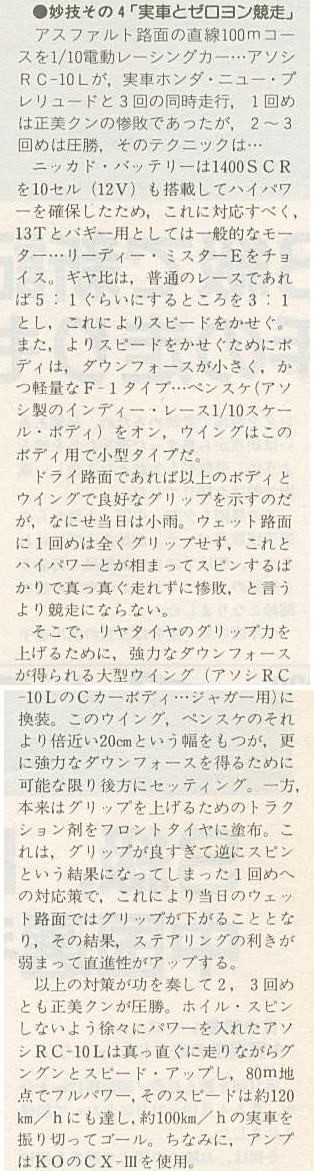 ●妙技その4「実車とゼロヨン競走」
アスファルト路面の直線100mコー
スを1/10電動レーシングカー…アソシ
RC-10Lが，実車ホンダ・ニュー・プ
レリュードと3回の同時走行，1回め
は正美クンの惨敗であったが，2〜3
回めは圧勝，そのテクニックは…
ニッカド・バッテリーは1400SCR
を10セル（12V）も搭載してハイパワ
ーを確保したため，これに対応すべく，
13Tとバギー用としては一般的なモー
ター…リーディー・ミスターEをチョ
イス。ギヤ比は，普通のレースであれ
ば5：1ぐらいにするところを3：1
とし，これによりスピードをかせぐ。
また，よりスピードをかせぐためにボ
ディは，ダウンフォースが小さく，か
つ軽量なF-1タイプ…ペンスケ(アソ
シ製のインディー・レース1/10スケー
ル・ボディ）をオン，ウイングはこの
ボディ用で小型タイプだ。
ドライ路面であれば以上のボディと
ウイングで良好なグリップを示すのだ
が，なにせ当日は小雨。ウェット路面
に1回めは全くグリップせず，これと
ハイパワーとが相まってスピンするば
かりで真っ直ぐ走れずに惨敗，と言う
より競走にならない。
そこで，リヤタイヤのグリップ力を
上げるために，強力なダウンフォース
が得られる大型ウイング（アソシRC
-10LのCカーボディ…ジャガー用)に
換装。このウイング，ペンスケのそれ
より倍近い20cmという幅をもつが，更
に強力なダウンフォースを得るために
可能な限り後方にセッティング。一方，
本来はグリップを上げるためのトラク
ション剤をフロントタイヤに塗布。こ
れは，グリップが良すぎて逆にスピン
という結果になってしまった1回めへ
の対応策で，これにより当日のウェッ
ト路面ではグリップが下がることとな
り，その結果，ステアリングの利きが
弱まって直進性がアップする。
以上の対策が功を奏して2，3回め
とも正美クンが圧勝。ホイル・スピン
しないよう徐々にパワーを入れたアソ
シRC-10Lは真っ直ぐに走りながらグ
ングンとスピード・アップし，80m地
点でフルパワー，そのスピードは約120
km／hにも達し，約100km／hの実車を
振り切ってゴール。ちなみに，アンプ
はKOのCX-Ⅲを使用。